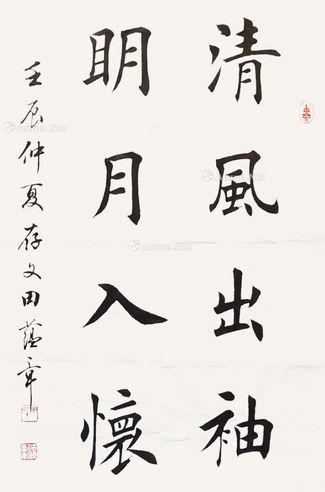 清風出袖
明月入懷
壬辰仲夏存文田蘊章
Artron.Net